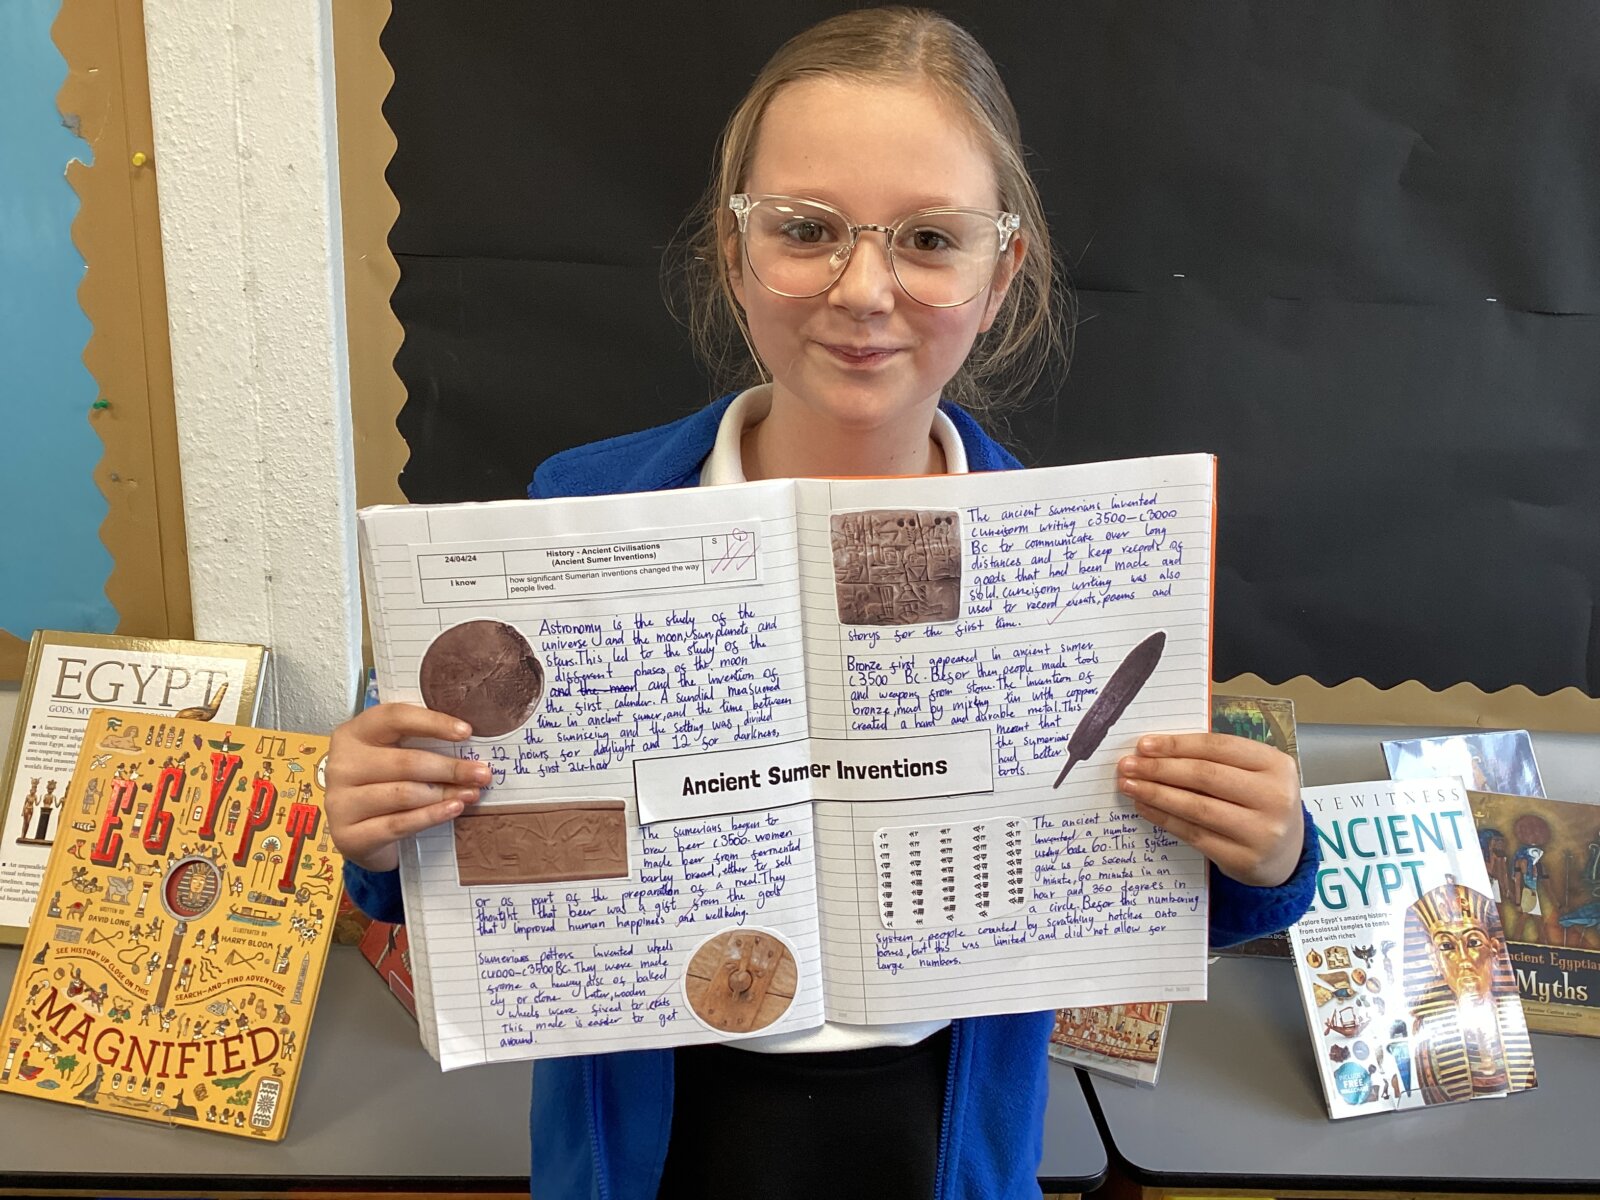 24/04/24
History - Ancient Civilisations
(Ancient Sumer Inventions)
S
I know
how significant Sumerian inventions changed the way
people lived.
Astronomy is the study of the
universe and the moon, sun, planets and
stars. This led to the study of the
different phases of the moon
and the moon and the invention of
the first calender. A sundial measured
time in ancient sumer, and the time between
the sunriseing and the setting was divided
into 12 hours for daylight and 12 for darkness,
the first 24-hour
Ancient Sumer Inventions
The Sumerians begun to
brew beer c3500. women
made beer from fermented
barley bread, either to sell
or as part of the preparation of a meal. They
thought that beer was a gift from the gods
that improved human happyness and wellbeing.
Sumerians potters invented wheels
c4000-c3500 BC. They were made
frome a heavey disc of baked
cly or stone. Later, wooden
wheels were fixed to carts
This made is easier to get
around.
The ancient sumerians invented
cuneiform writing c3500-c3000
BC to communicate over long
distances and to keep records of
goods that had been made and
sold. cuneiform writing was also
used to record events, poems and
storys for the first time.
Bronze first appeared in ancient sumer
c3500 BC. Befor then, people made tools
and weapons from stone. The invention of
bronze, mad by mixing tin with copper,
created a hard and durable metal. This
meant that
the sumerians
had better
tools.
The ancient Sumer
invented a number
using base 60. This system
gave us 60 seconds in a
minute, 60 minutes in an
hour and 360 degrees in
a circle. Befor this numbering
system, people counted by scratching notches onto
bones, but this was limited and did not allow for
large numbers.
EGYPT
GODS, MY
EGYPT
WRITTEN BY
DAVID LONG
ILLUSTRATED BY
HARRY BLOOM
SEE HISTORY UP CLOSE ON THIS
SEARCH-AND-FIND ADVENTURE
MAGNIFIED
EYEWITNESS
ANCIENT
EGYPT
Explore Egypt's amazing history –
from colossal temples to tombs
packed with riches
INCLUDES
FREE
WALLCHART
Ancient Egyptian
Myths